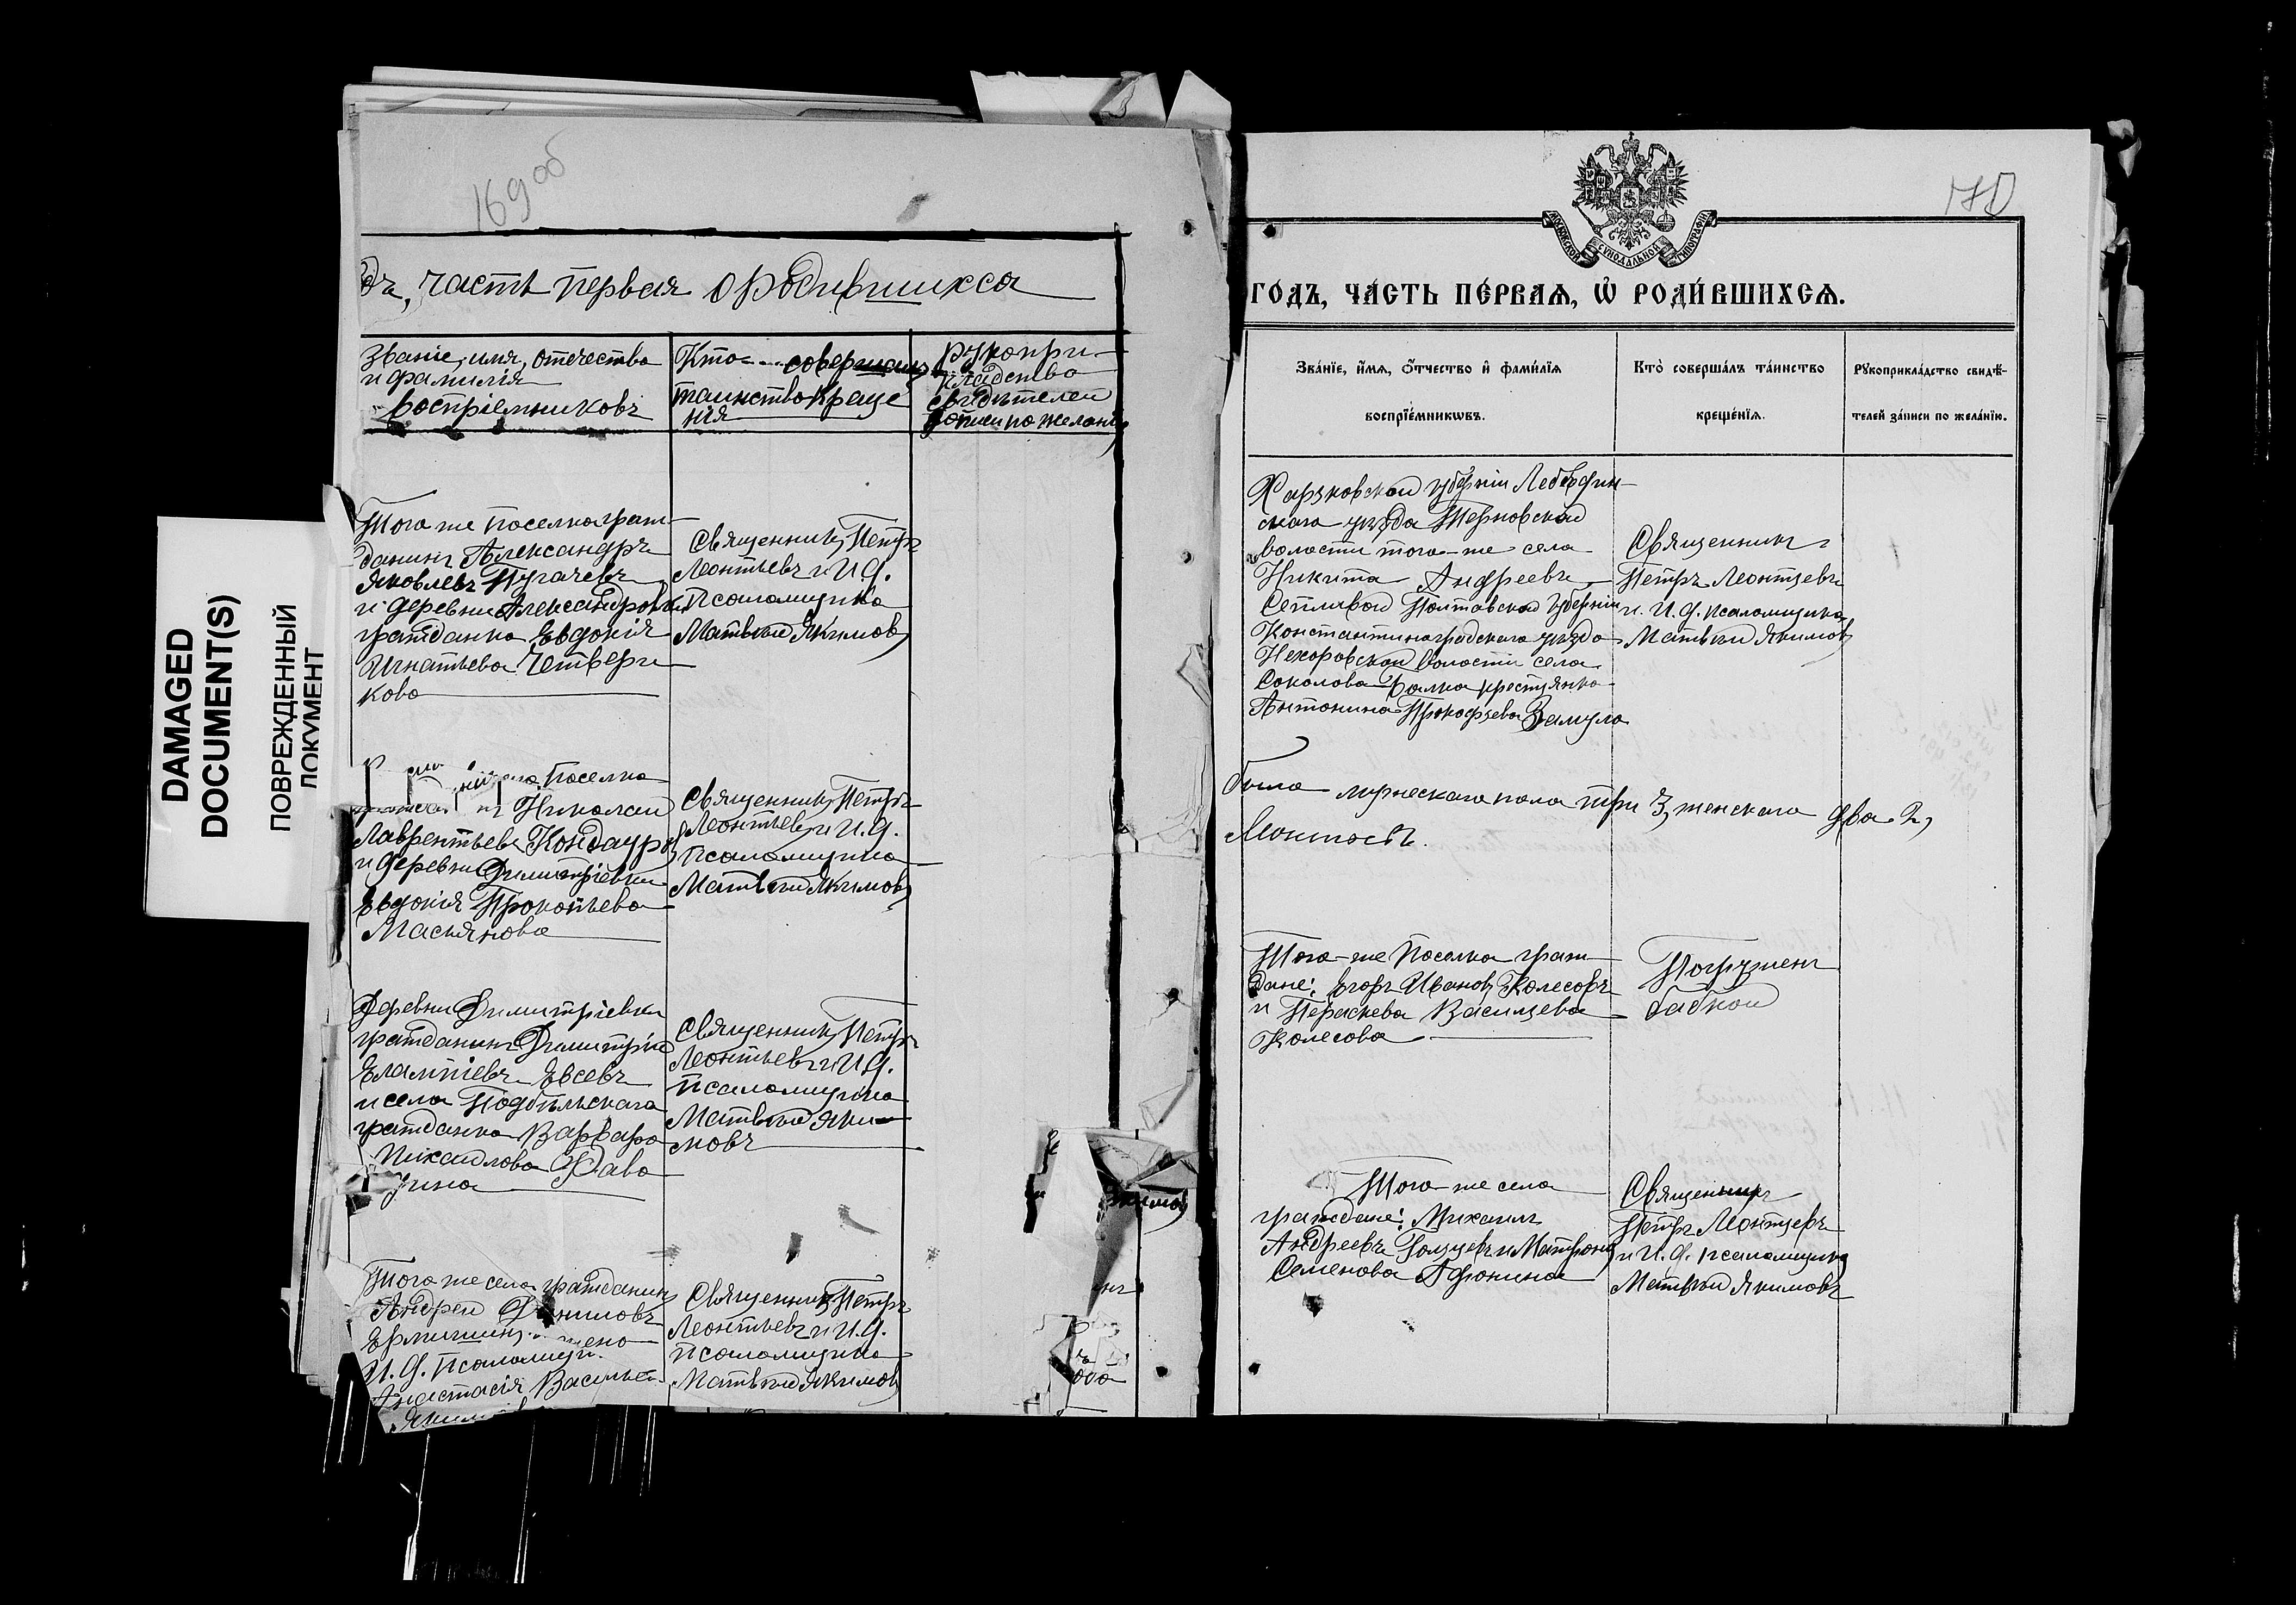 DAMAGED
DOCUMENT(S)
ПОВРЕЖДЕННЫЙ
ДОКУМЕНТ
169 об
дъ, часть первая о родившихся
Званіе, имя, отчество
и фамилія
воспріемниковъ
Кто совершалъ
таинство креще
нія
рукопри-
кладство
свидѣтелей
записи по желанію
Того же поселка граж-
данинъ Александръ
Яковлевъ Пугачевъ
и деревни Александровки
гражданка Евдокія
Игнатьева Четверги
кова
Священникъ Петръ
Леонтьевъ и И.д.
Псаломщика
Матвѣй Якимовъ
поселка
Николай
Лаврентьевъ Кондауровъ
и деревни Димитріевки
Евдокія Прокопьева
Масьянова
Священникъ Петръ
Леонтьевъ и И.д.
Псаломщика
Матвѣй Якимовъ
Деревни Димитріевки
гражданинъ Димитрій
Евлампіевъ Евсевъ
и села Подбѣльскаго
гражданка Варвара
Михаилова
Священникъ Петръ
Леонтьевъ и И.д.
псаломщика
Матвѣй Яки-
мовъ
Того же села гражданинъ
Андрей
И.д. Псаломщи
Анастасія Василье
Священникъ Петръ
Леонтьевъ и И.д.
псаломщика
Матвѣй Якимовъ
170
МОСКОВСКОЙ СУНОДАЛЬНОЙ ТИПОГРАФІИ
ГО́ДЪ, ЧА́СТЬ ПЕ́РВАѦ, Ѡ҆ РОДИ́ВШИХСѦ.
Зва́нїе, и҆́мѧ, ѻ҆́тчество и҆ фами́лїѧ
воспрїе́мникѡвъ.
Кто̀ соверша́лъ та́инство
креще́нїѧ.
Рꙋкоприкла́дство свидѣ́-
телей за́писи по жела́нїю.
Харьковской губерніи Лебедин-
скаго уѣзда Терновской
волости того-же села
Никита Андреевъ
Полтавской губерніи
Константиноградскаго уѣзда
волости села
Соколова Балка крестьянка
Антонина Прокофьева Замула
Священникъ
Петръ Леонтьевъ
и И.д. псаломщика
Матвѣй Якимовъ
было мужескаго пола три 3, женскаго два 2,
Того-же Поселка граж
дане: Егоръ Ивановъ Колесовъ
и Параскева Васильева
Колесова
Погруженъ
бабкой
Того-же села
граждане: Михаилъ
Андреевъ Голуцевъ и Матрона
Семенова Афонина
Священникъ
Петръ Леонтьевъ
и И.д. псаломщика
Матвѣй Якимовъ